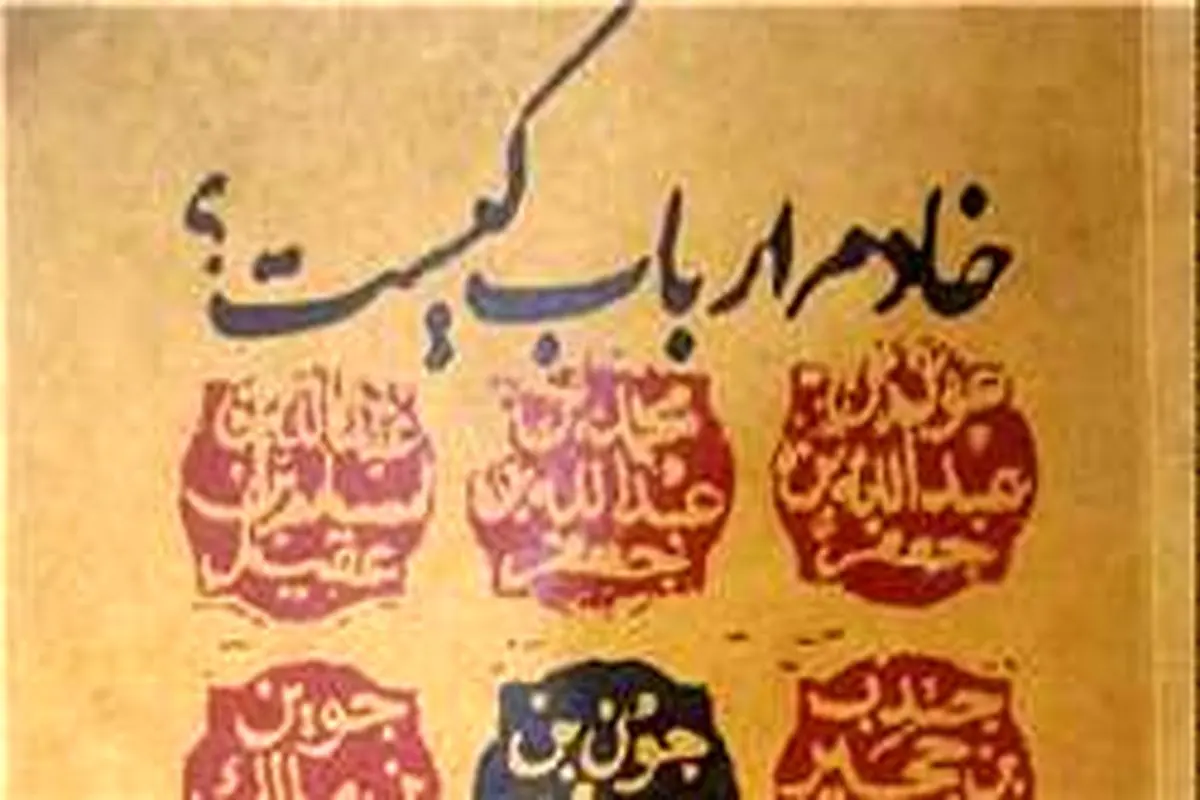 خادم ارباب کیست؟
عون بن
عبدالله بن
جعفر
محمد بن
عبدالله بن
جعفر
عبدالله بن
مسلم بن
عقیل
جندب
بن حجیر
جون بن
جوین
بن مالک